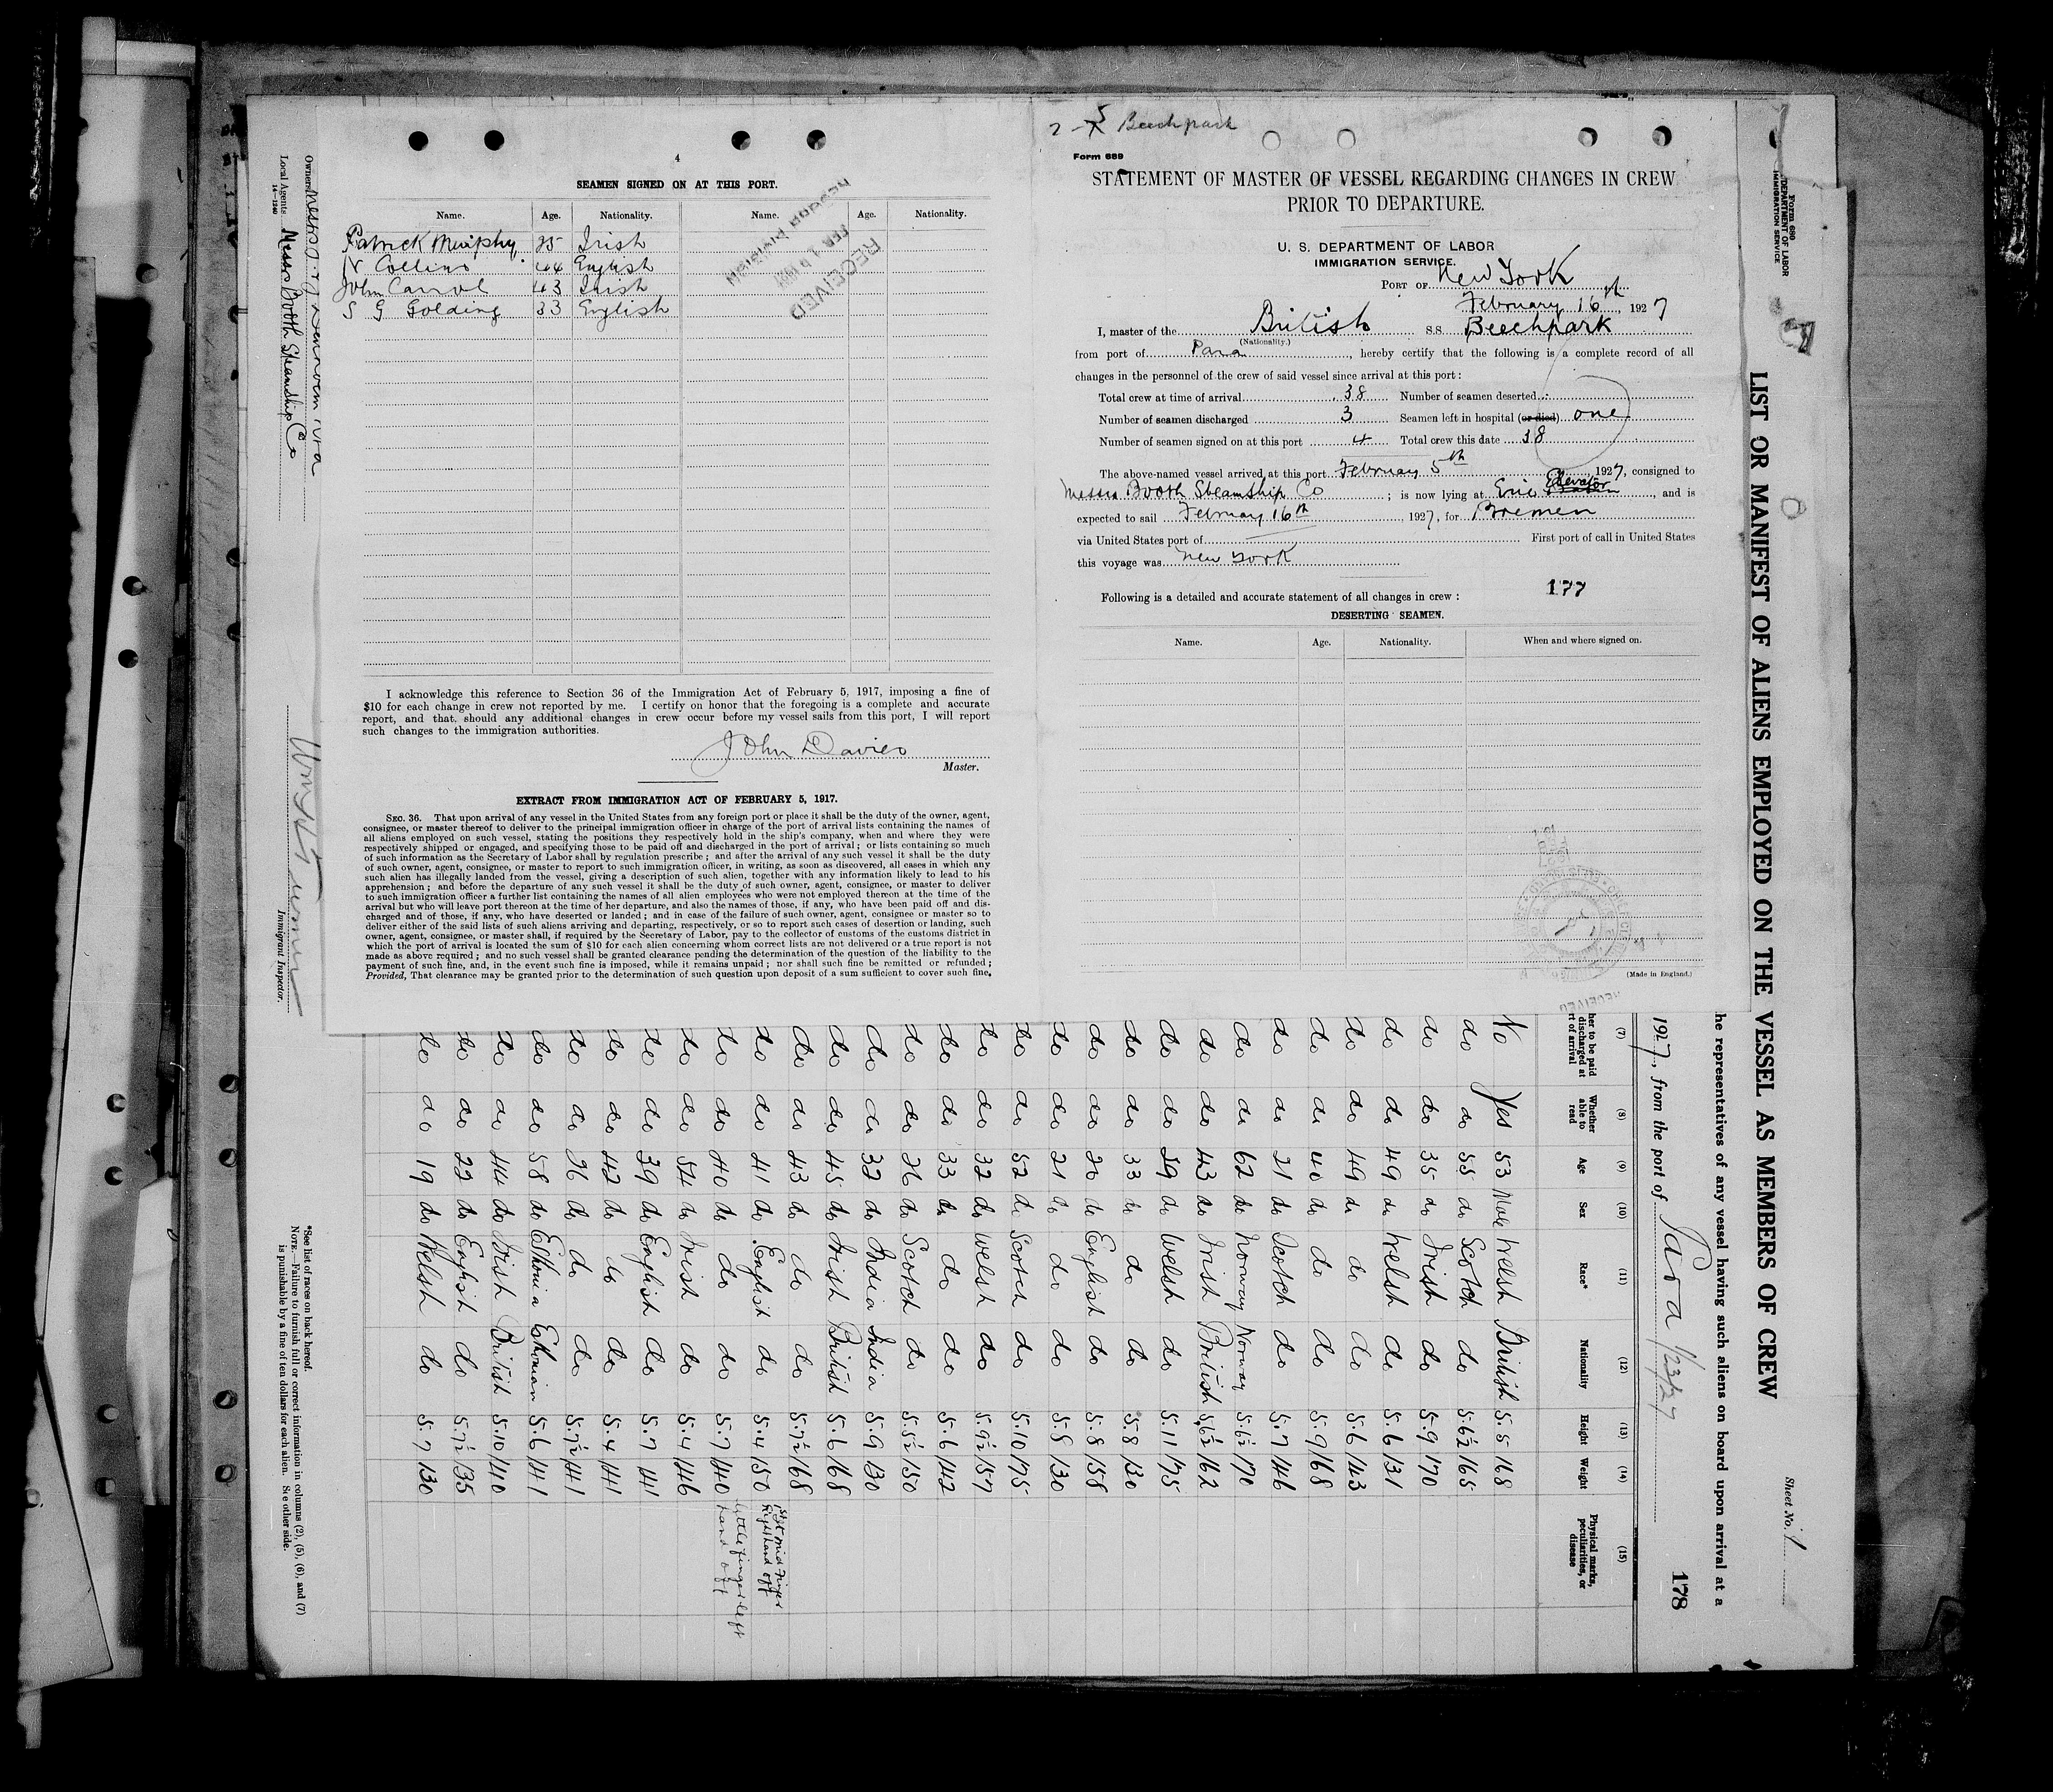 4
SEAMEN SIGNED ON AT THIS PORT.
Name. Age. Nationality. Name. Age. Nationality.
Patrick Murphy 25 Irish
N Collins 44 English
John Carrol 43 Irish
S G Golding 33 English
RECEIVED
I acknowledge this reference to Section 36 of the Immigration Act of February 5, 1917, imposing a fine of
$10 for each change in crew not reported by me. I certify on honor that the foregoing is a complete and accurate
report, and that, should any additional changes in crew occur before my vessel sails from this port, I will report
such changes to the immigration authorities.
John Davies
Master.
EXTRACT FROM IMMIGRATION ACT OF FEBRUARY 5, 1917.
SEC. 36. That upon arrival of any vessel in the United States from any foreign port or place it shall be the duty of the owner, agent,
consignee, or master thereof to deliver to the principal immigration officer in charge of the port of arrival lists containing the names of
all aliens employed on such vessel, stating the positions they respectively hold in the ship's company, when and where they were
respectively shipped or engaged, and specifying those to be paid off and discharged in the port of arrival; or lists containing so much
of such information as the Secretary of Labor shall by regulation prescribe; and after the arrival of any such vessel it shall be the duty
of such owner, agent, consignee, or master to report to such immigration officer, in writing, as soon as discovered, all cases in which any
such alien has illegally landed from the vessel, giving a description of such alien, together with any information likely to lead to his
apprehension; and before the departure of any such vessel it shall be the duty of such owner, agent, consignee, or master to deliver
to such immigration officer a further list containing the names of all alien employees who were not employed thereon at the time of the
arrival but who will leave port thereon at the time of her departure, and also the names of those, if any, who have been paid off and dis-
charged and of those, if any, who have deserted or landed; and in case of the failure of such owner, agent, consignee or master so to
deliver either of the said lists of such aliens arriving and departing, respectively, or so to report such cases of desertion or landing, such
owner, agent, consignee, or master shall, if required by the Secretary of Labor, pay to the collector of customs of the customs district in
which the port of arrival is located the sum of $10 for each alien concerning whom correct lists are not delivered or a true report is not
made as above required; and no such vessel shall be granted clearance pending the determination of the question of the liability to the
payment of such fine, and, in the event such fine is imposed, while it remains unpaid; nor shall such fine be remitted or refunded;
Provided, That clearance may be granted prior to the determination of such question upon deposit of a sum sufficient to cover such fine.
Beechpark
Form 689
STATEMENT OF MASTER OF VESSEL REGARDING CHANGES IN CREW
PRIOR TO DEPARTURE.
U. S. DEPARTMENT OF LABOR
IMMIGRATION SERVICE.
PORT OF New York
February 16th, 1927
I, master of the British S.S. Beechpark
(Nationality.)
from port of Para, hereby certify that the following is a complete record of all
changes in the personnel of the crew of said vessel since arrival at this port:
Total crew at time of arrival 38 Number of seamen deserted
Number of seamen discharged 3 Seamen left in hospital (or died) one
Number of seamen signed on at this port 4 Total crew this date 38
The above-named vessel arrived at this port February 5th 1927, consigned to
Messrs Booth Steamship Co; is now lying at Erie Elevator, and is
expected to sail February 16th, 1927, for Bremen
via United States port of First port of call in United States
this voyage was New York
177
Following is a detailed and accurate statement of all changes in crew:
DESERTING SEAMEN.
Name. Age. Nationality. When and where signed on.
(Made in England.)
Form 680
DEPARTMENT OF LABOR
IMMIGRATION SERVICE
Sheet No. 1
LIST OR MANIFEST OF ALIENS EMPLOYED ON THE VESSEL AS MEMBERS OF CREW
he representatives of any vessel having such aliens on board upon arrival at a
1927, from the port of Para 1/23/27
178
(7) (8) (9) (10) (11) (12) (13) (14) (15)
her to be paid discharged at rt of arrival Whether able to read Age Sex Race* Nationality Height Weight Physical marks, peculiarities, or disease
No Yes 53 Male Welsh British 5.5 168
do do 55 do Scotch do 5.6½ 165
do do 35 do Irish do 5.9 170
do do 49 do Welsh do 5.6 131
do do 49 do do do 5.6 143
do do 40 do do do 5.9 168
do do 21 do Scotch do 5.7 146
do do 62 do Norway Norway 5.6½ 170
do do 43 do Irish British 5.6½ 162
do do 29 do Welsh do 5.11 175
do do 33 do do do 5.8 130
do do 20 do English do 5.8 158
do do 21 do do do 5.8 130
do do 52 do Scotch do 5.10 175
do do 32 do Welsh do 5.9½ 157
do do 33 do do do 5.6 142
do do 26 do Scotch do 5.5½ 150
do do 32 do India India 5.9 130
do do 45 do Irish British 5.6 168
do do 43 do do do 5.7½ 168
do do 41 do English do 5.4 150 Right hand off
do do 40 do do do 5.7 140 little finger left hand off
do do 54 do Irish do 5.4 146
do do 39 do English do 5.7 141
do do 42 do do do 5.4 141
do do 26 do do do 5.7½ 141
do do 58 do Ethonia Ethonian 5.6 141
do do 44 do Irish British 5.10 140
do do 22 do English do 5.7½ 135
do do 19 do Welsh do 5.7 130
*See list of races on back hereof.
NOTE.—Failure to furnish full or correct information in columns (2), (5), (6), and (7)
is punishable by a fine of ten dollars for each alien. See other side.
Immigrant Inspector.
Owners Messrs
Local Agents Messrs Booth Steamship Co
14—1240